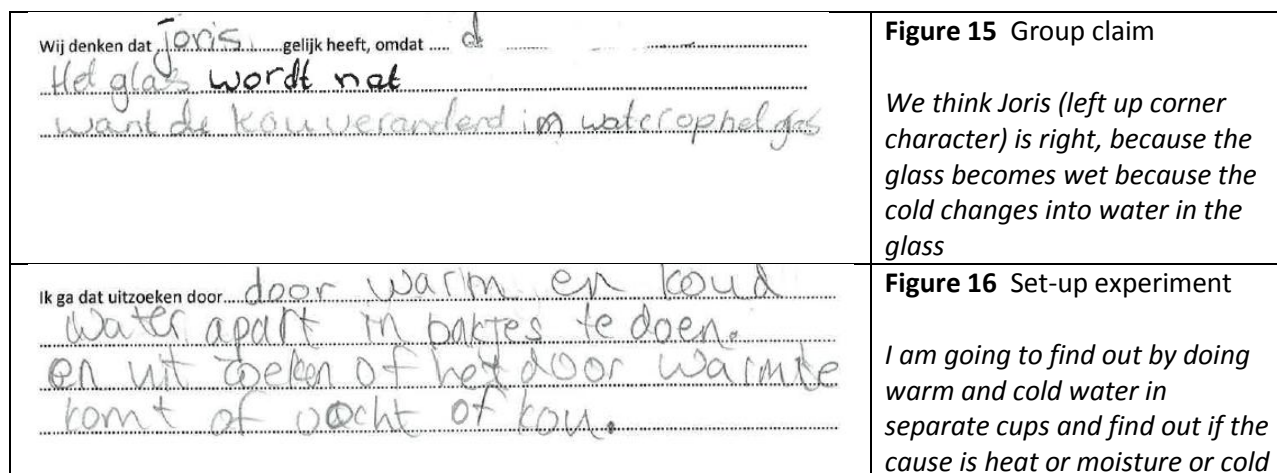 Wij denken dat joris gelijk heeft, omdat d
Het glas wordt nat
want de kou veranderd in water op het glas
Figure 15 Group claim
We think Joris (left up corner
character) is right, because the
glass becomes wet because the
cold changes into water in the
glass
Ik ga dat uitzoeken door door warm en koud
water apart in bakjes te doen.
en uit zoeken of het door warmte
komt of vocht of kou.
Figure 16 Set-up experiment
I am going to find out by doing
warm and cold water in
separate cups and find out if the
cause is heat or moisture or cold